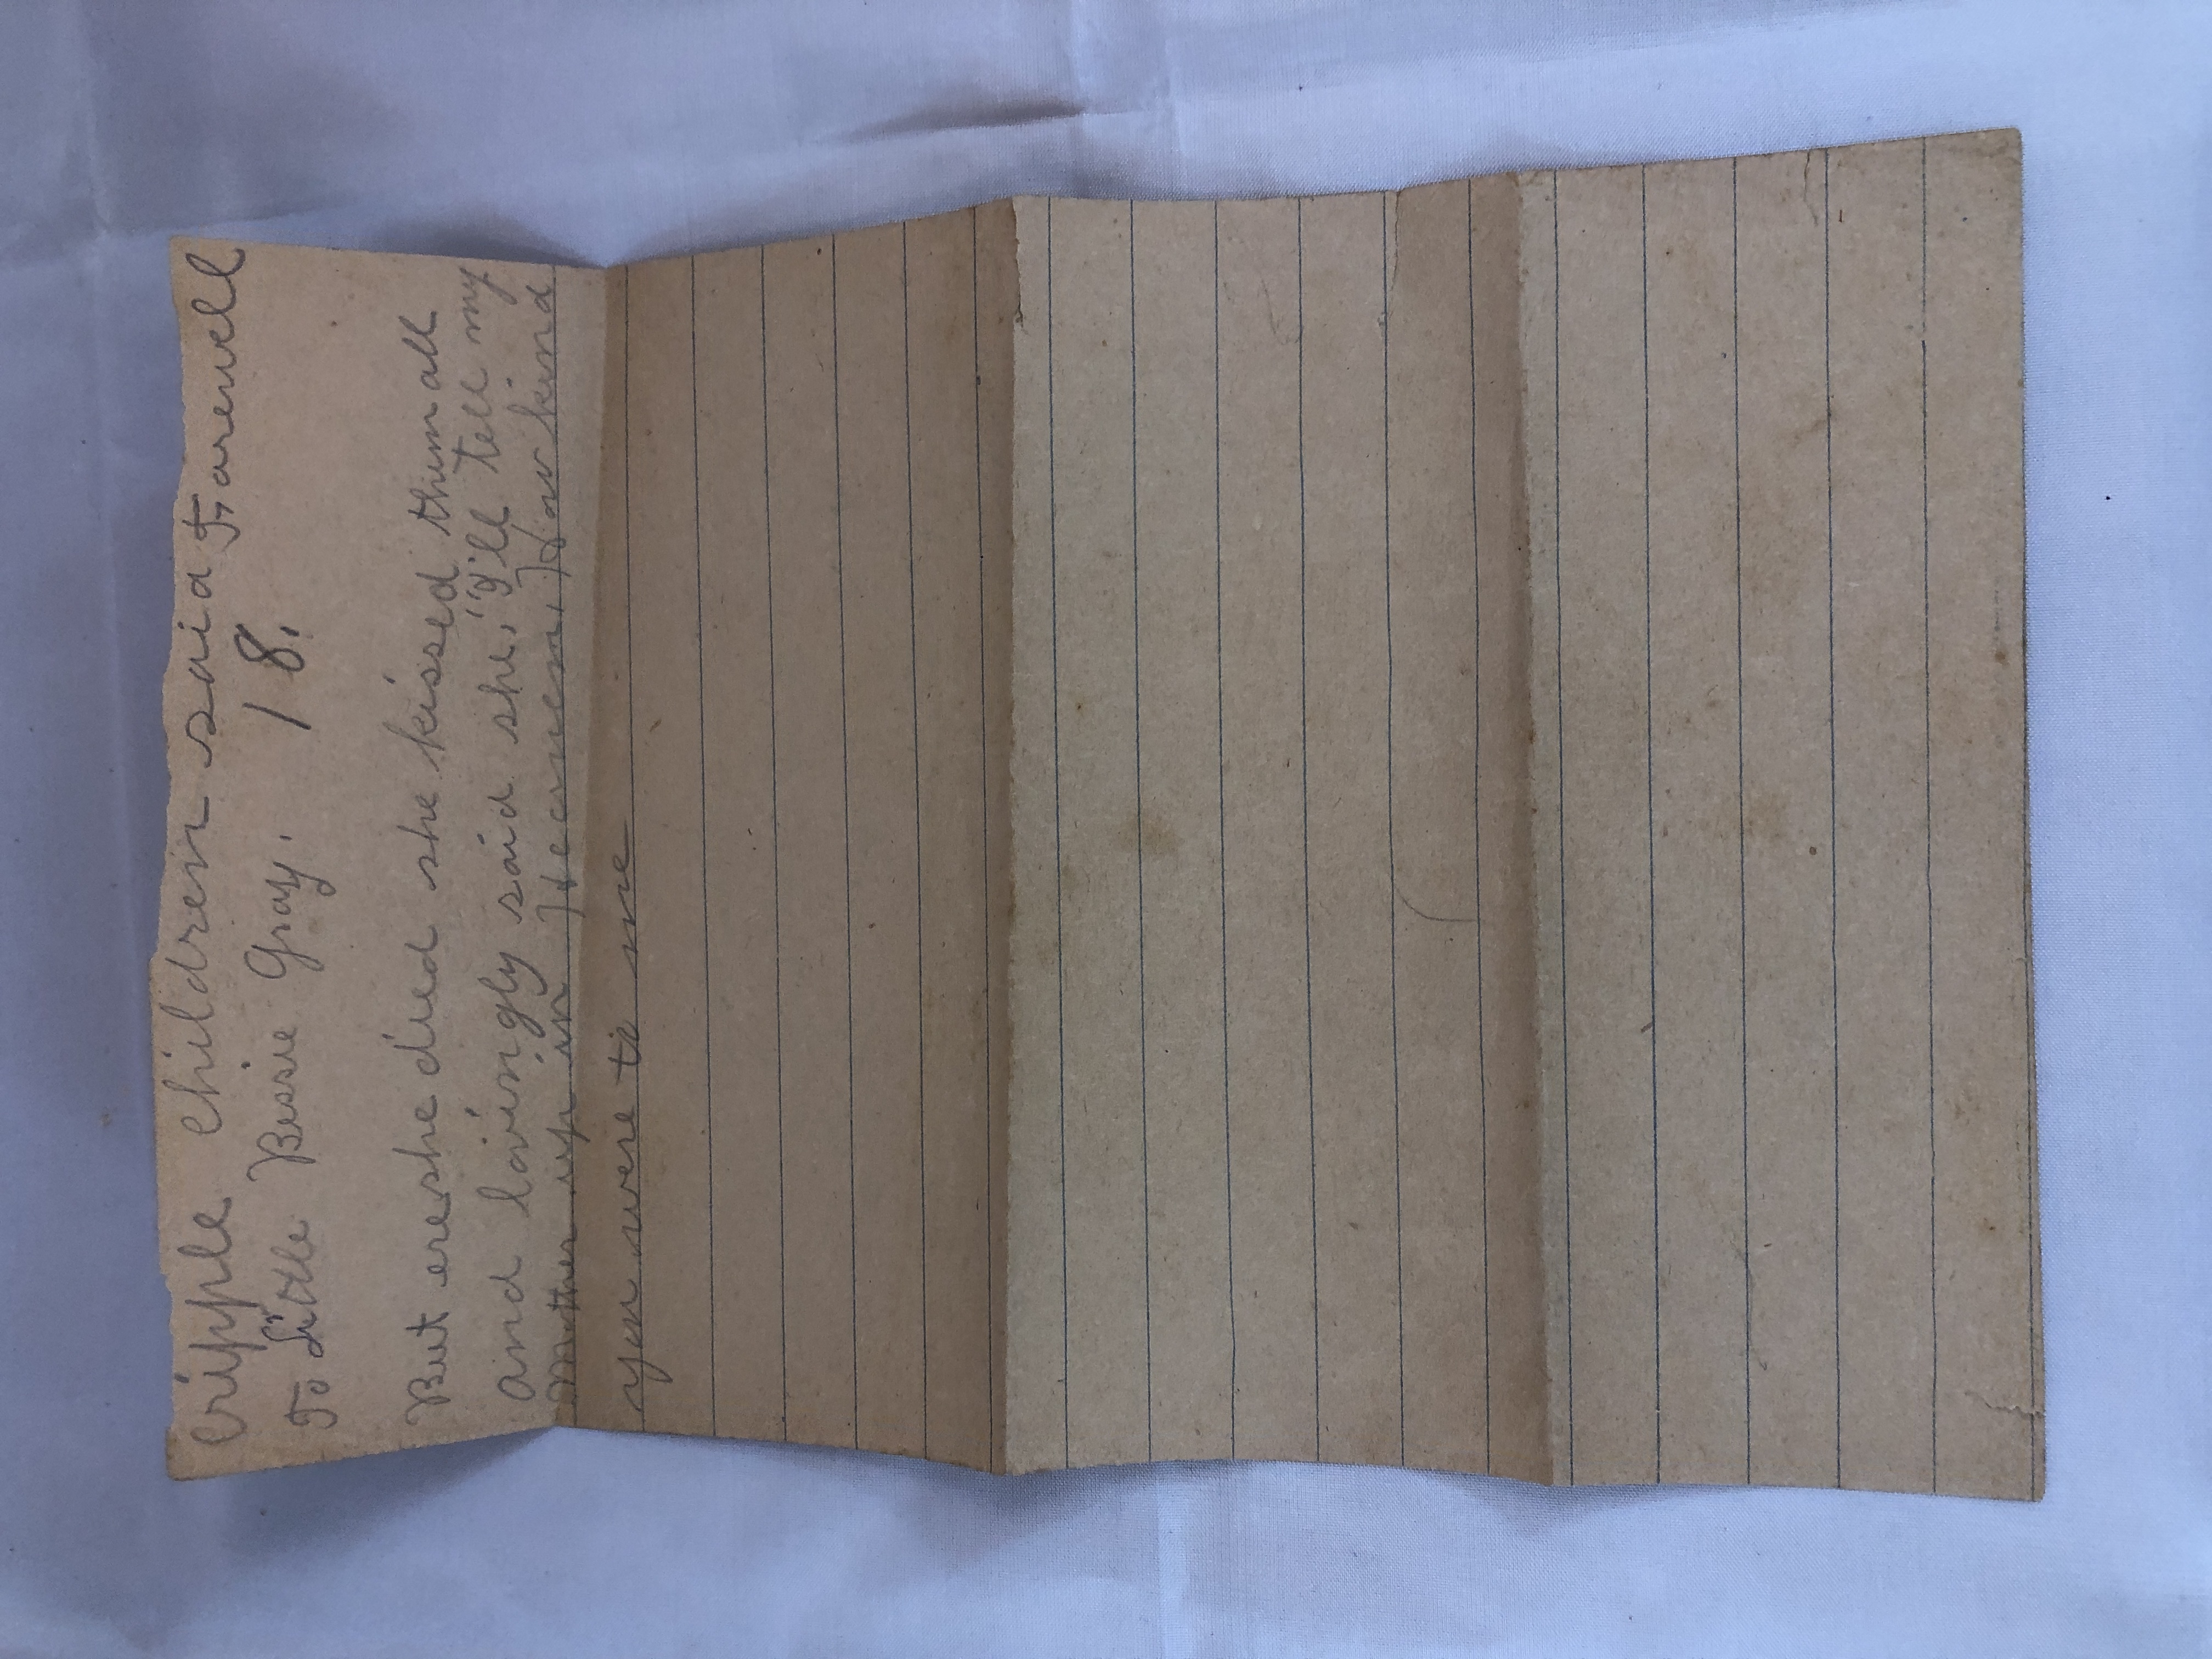 cripple children said Farewell
To Little Bessie Gray. 18.
But ere she died she kissed them all
and lovingly said she, "I'll tell my
Mother up in Heaven, How kind
you were to me